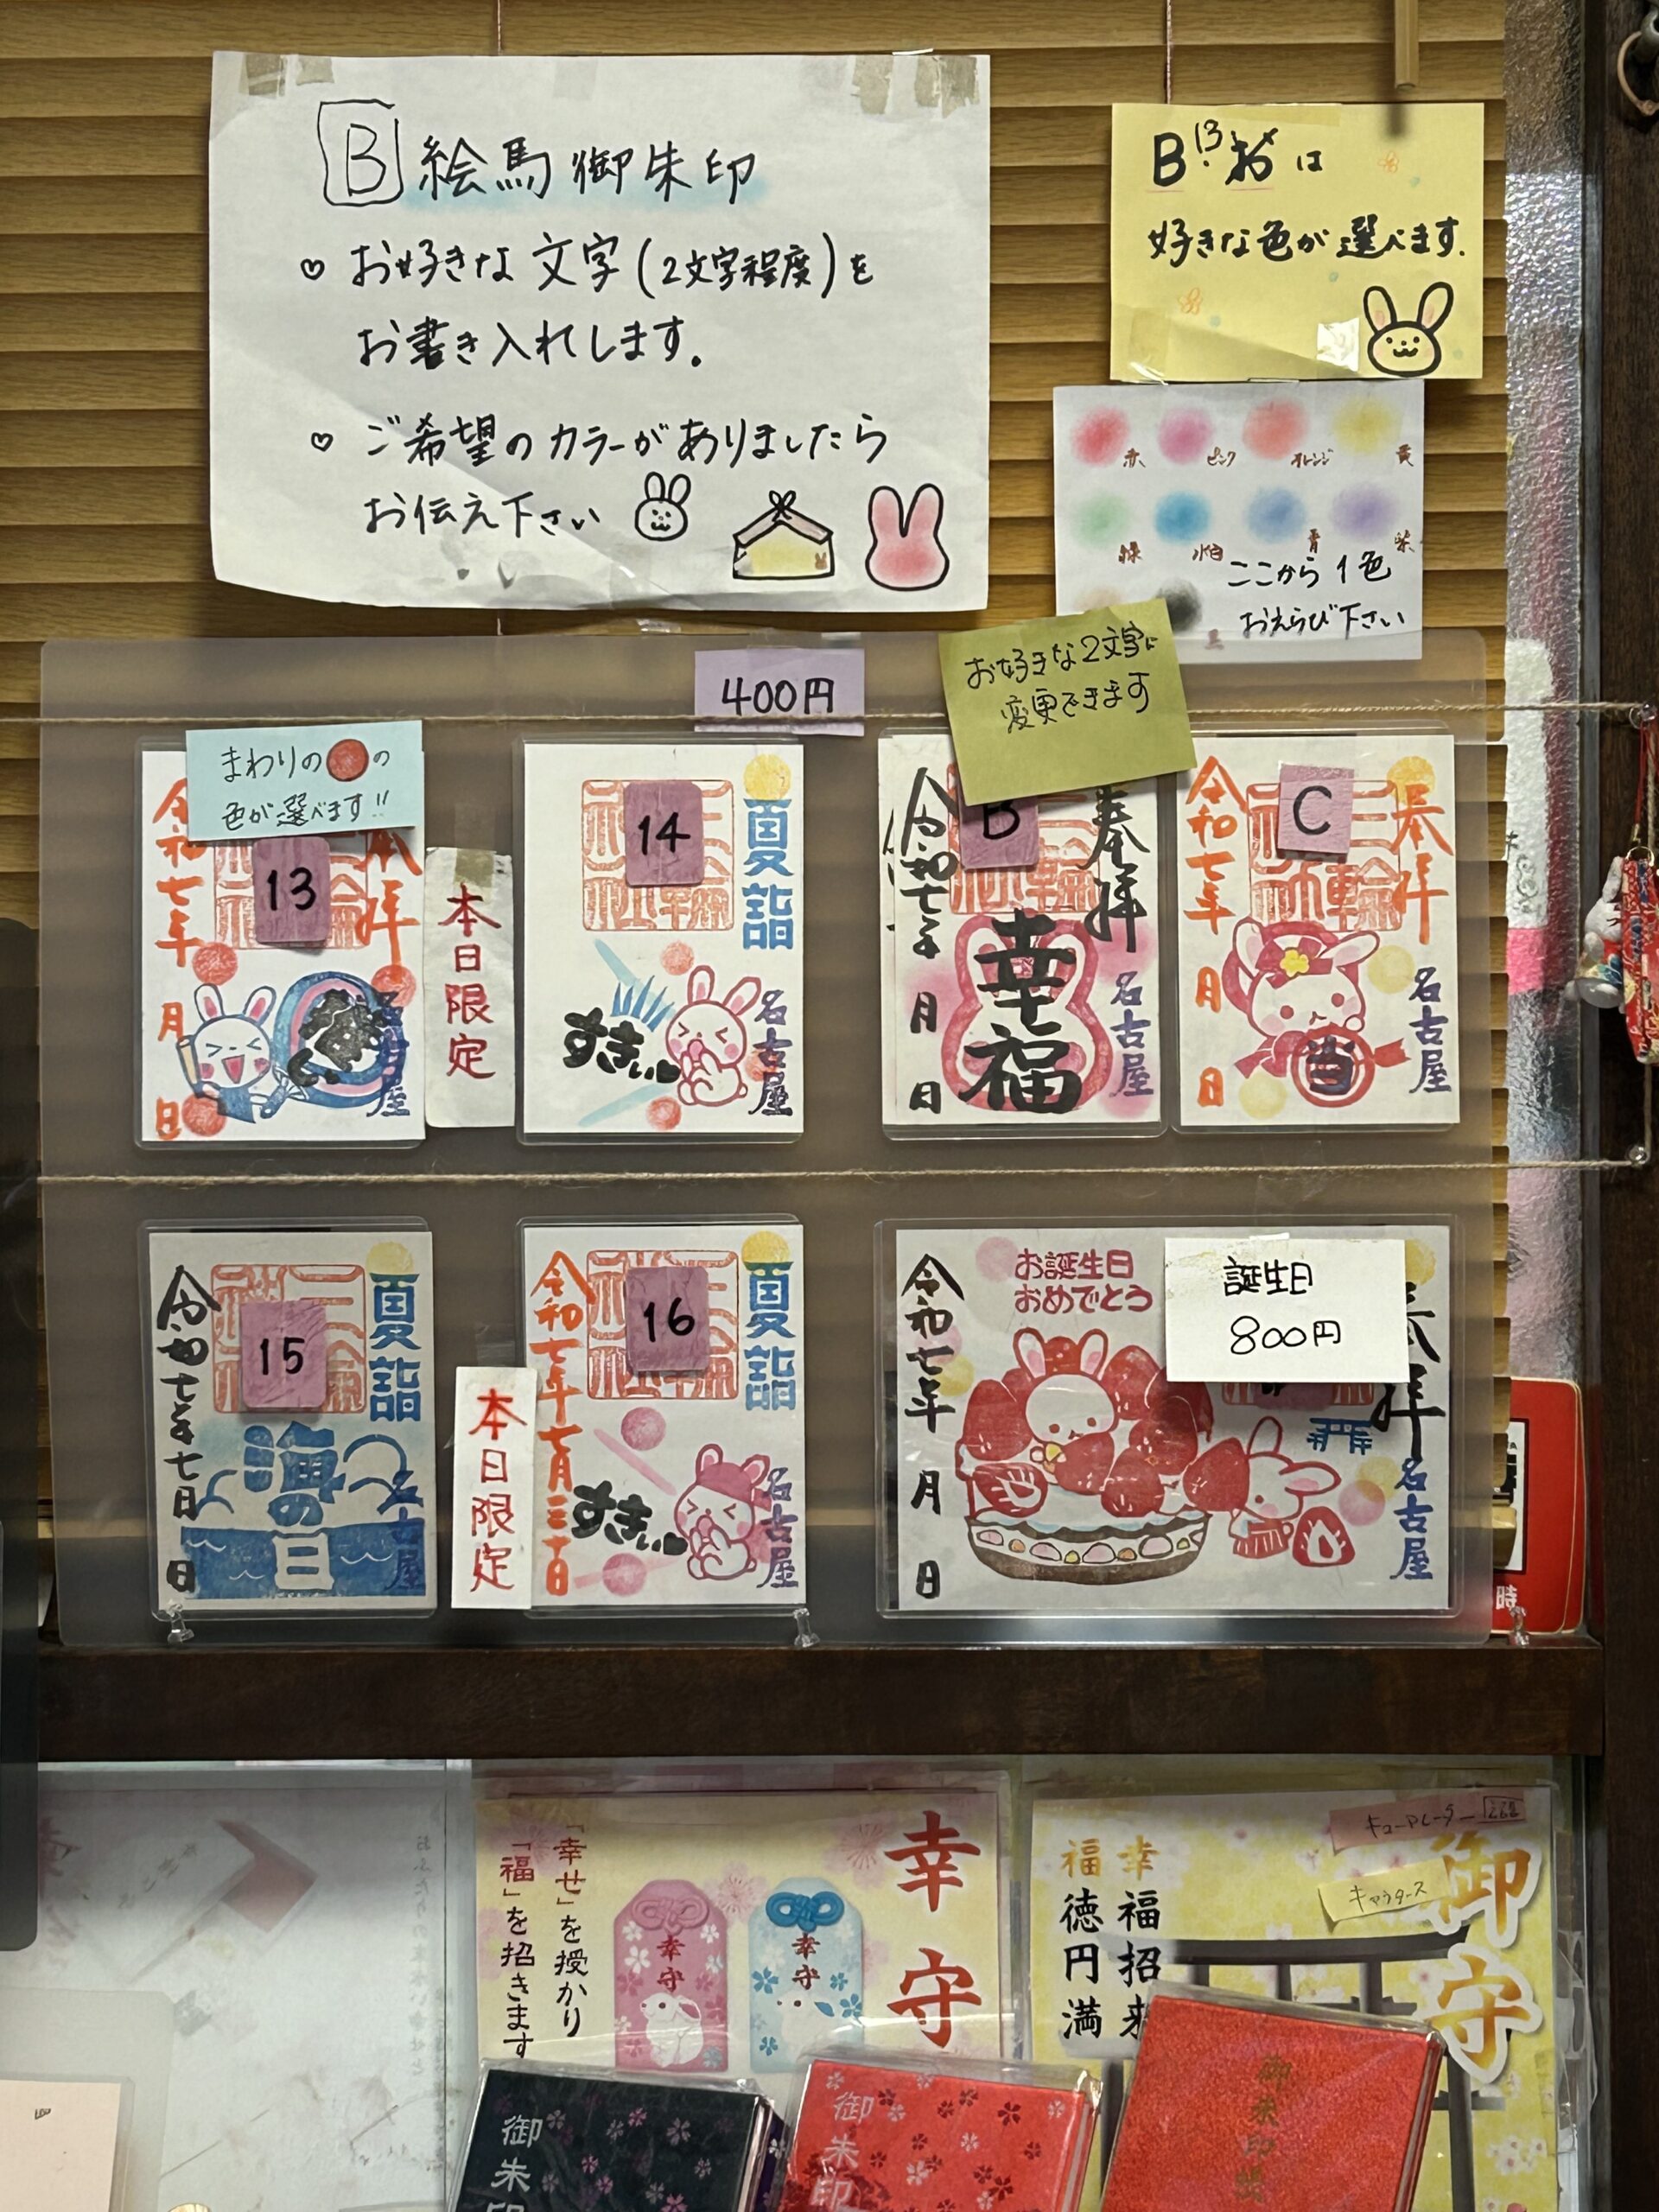 B 絵馬御朱印
♡ お好きな文字(2文字程度)を
お書き入れします。
♡ ご希望のカラーがありましたら
お伝え下さい
B 13 お は
好きな色が選べます。
赤 ピンク オレンジ 黄
緑 水色 青 紫
ここから1色
おえらび下さい
黒
400円
お好きな2文字に
変更できます
まわりの●の
色が選べます!!
13
奉拝
令和七年
月
日
名古屋
本日限定
14
夏詣
すきぃ
名古屋
B
奉拝
令和七年
月
日
幸福
名古屋
C
奉拝
令和七年
月
日
当
名古屋
15
夏詣
令和七年七月
日
海の日
名古屋
本日限定
16
夏詣
令和七年七月三十日
すきぃ
名古屋
お誕生日
おめでとう
誕生日
800円
奉拝
令和七年
月
日
名古屋
時
幸守
「幸せ」を授かり
「福」を招きます
幸守
幸守
キューアレーター
キャラクタース
御守
幸福招来
福徳円満
御朱印
御朱印
御朱印帳